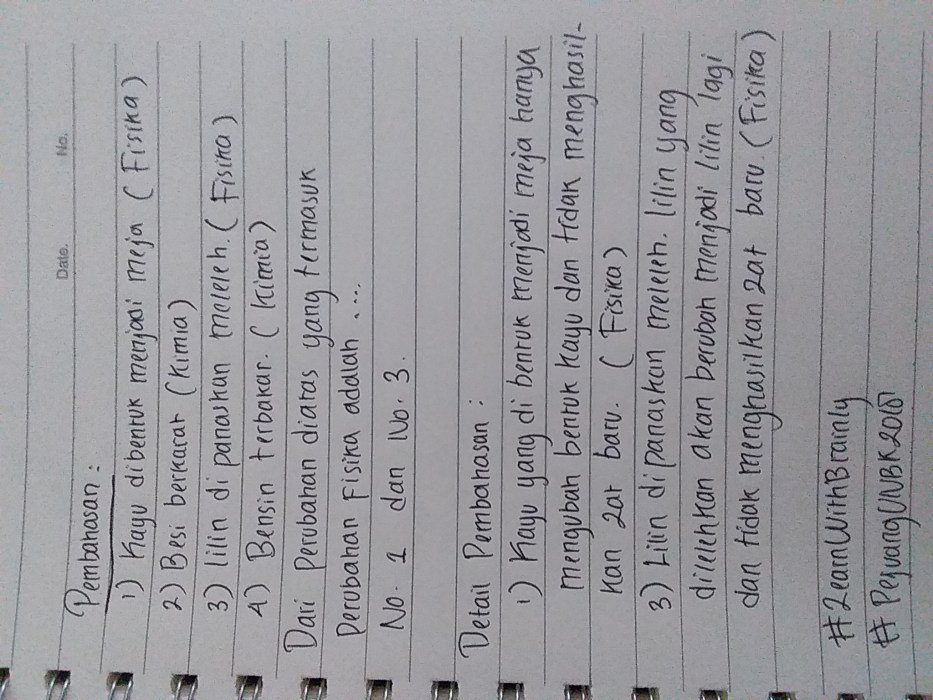 Date. No.
Pembahasan :
1) Kayu dibentuk menjadi meja ( Fisika )
2) Besi berkarat (Kimia)
3) lilin di panaskan meleleh. ( Fisika )
4) Bensin terbakar. ( Kimia )
Dari perubahan diatas yang termasuk
perubahan Fisika adalah ....
No. 1 dan No. 3.
Detail Pembahasan :
1) Kayu yang di bentuk menjadi meja hanya
mengubah bentuk kayu dan tidak menghasil-
kan zat baru. ( Fisika )
3) Lilin dipanaskan meleleh. lilin yang
dilelehkan akan berubah menjadi lilin lagi
dan tidak menghasilkan zat baru. (Fisika)
#LearnWithBrainly
# PejuangUNBK2018